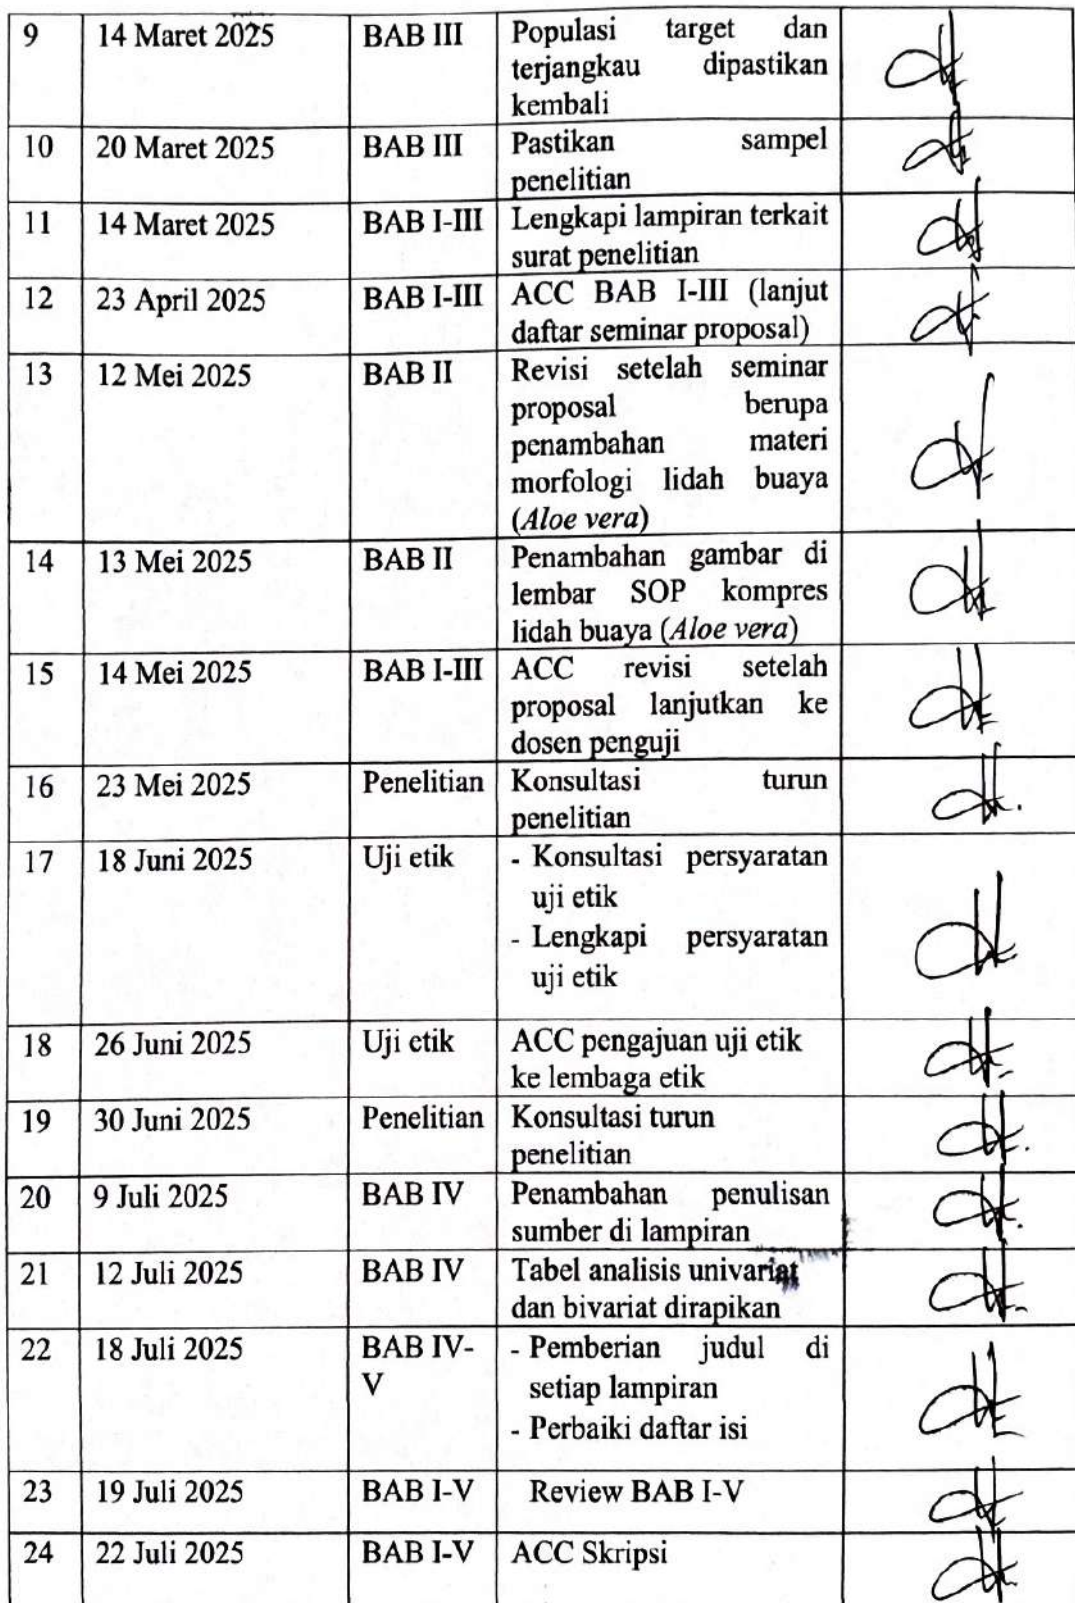 9 14 Maret 2025 BAB III Populasi target dan
terjangkau dipastikan
kembali
10 20 Maret 2025 BAB III Pastikan sampel
penelitian
11 14 Maret 2025 BAB I-III Lengkapi lampiran terkait
surat penelitian
12 23 April 2025 BAB I-III ACC BAB I-III (lanjut
daftar seminar proposal)
13 12 Mei 2025 BAB II Revisi setelah seminar
proposal berupa
penambahan materi
morfologi lidah buaya
(Aloe vera)
14 13 Mei 2025 BAB II Penambahan gambar di
lembar SOP kompres
lidah buaya (Aloe vera)
15 14 Mei 2025 BAB I-III ACC revisi setelah
proposal lanjutkan ke
dosen penguji
16 23 Mei 2025 Penelitian Konsultasi turun
penelitian
17 18 Juni 2025 Uji etik - Konsultasi persyaratan
uji etik
- Lengkapi persyaratan
uji etik
18 26 Juni 2025 Uji etik ACC pengajuan uji etik
ke lembaga etik
19 30 Juni 2025 Penelitian Konsultasi turun
penelitian
20 9 Juli 2025 BAB IV Penambahan penulisan
sumber di lampiran
21 12 Juli 2025 BAB IV Tabel analisis univariat
dan bivariat dirapikan
22 18 Juli 2025 BAB IV- - Pemberian judul di
V setiap lampiran
- Perbaiki daftar isi
23 19 Juli 2025 BAB I-V Review BAB I-V
24 22 Juli 2025 BAB I-V ACC Skripsi